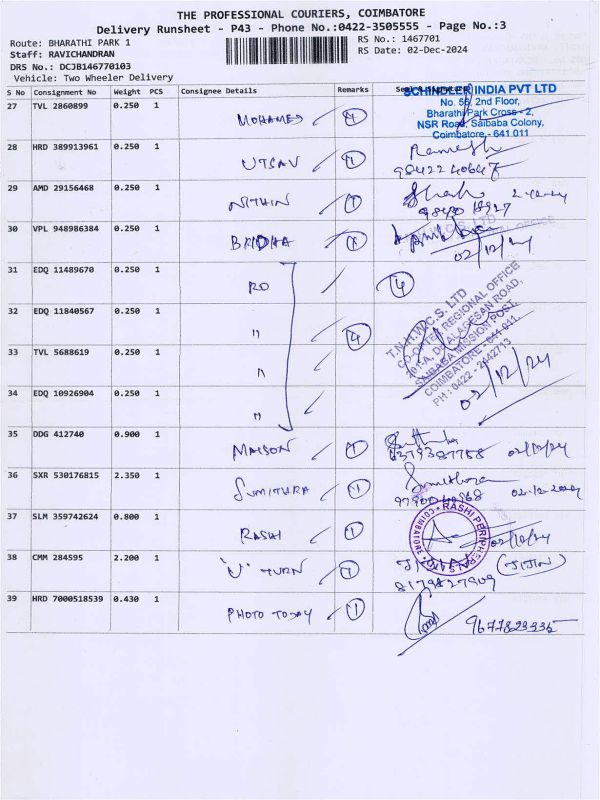 THE PROFESSIONAL COURIERS, COIMBATORE
Delivery Runsheet - P43 - Phone No.:0422-3505555 - Page No.:3
Route: BHARATHI PARK 1
RS No.: 1467701
Staff: RAVICHANDRAN
RS Date: 02-Dec-2024
DRS No.: DCJB146770103
Vehicle: Two Wheeler Delivery
S No Consignment No Weight PCS Consignee Details Remarks
27 TVL 2860899 0.250 1 MOHAMED 1
SCHINDLER INDIA PVT LTD
No. 56, 2nd Floor,
Bharathi Park Cross - 2,
NSR Road, Saibaba Colony,
Coimbatore - 641 011
28 HRD 389913961 0.250 1 UTSAV 1 Ramesh
29 AMD 29156468 0.250 1 NITHIN 1
30 VPL 948986384 0.250 1 1
02/12/24
31 EDQ 11489670 0.250 1 RO 4
32 EDQ 11840567 0.250 1 " 4
T.N.H.W.C.S. LTD
CO-OPTEX REGIONAL OFFICE
SAIBABA MISSION POST,
COIMBATORE - 641 011.
PH : 0422 - 2442713
33 TVL 5688619 0.250 1 "
02/12/24
34 EDQ 10926904 0.250 1 "
35 DDG 412740 0.900 1 MAISON 1
02/12/24
36 SXR 530176815 2.350 1 SUMITHRA 1
02.12.2024
37 SLM 359742624 0.800 1 RASHI 1
RASHI PERIPHERALS LTD. COIMBATORE
02/12/24
38 CMM 284595 2.200 1 'U' TURN 1
(JIJIN)
8179827909
39 HRD 7000518539 0.430 1 PHOTO TODAY 1
9677823335